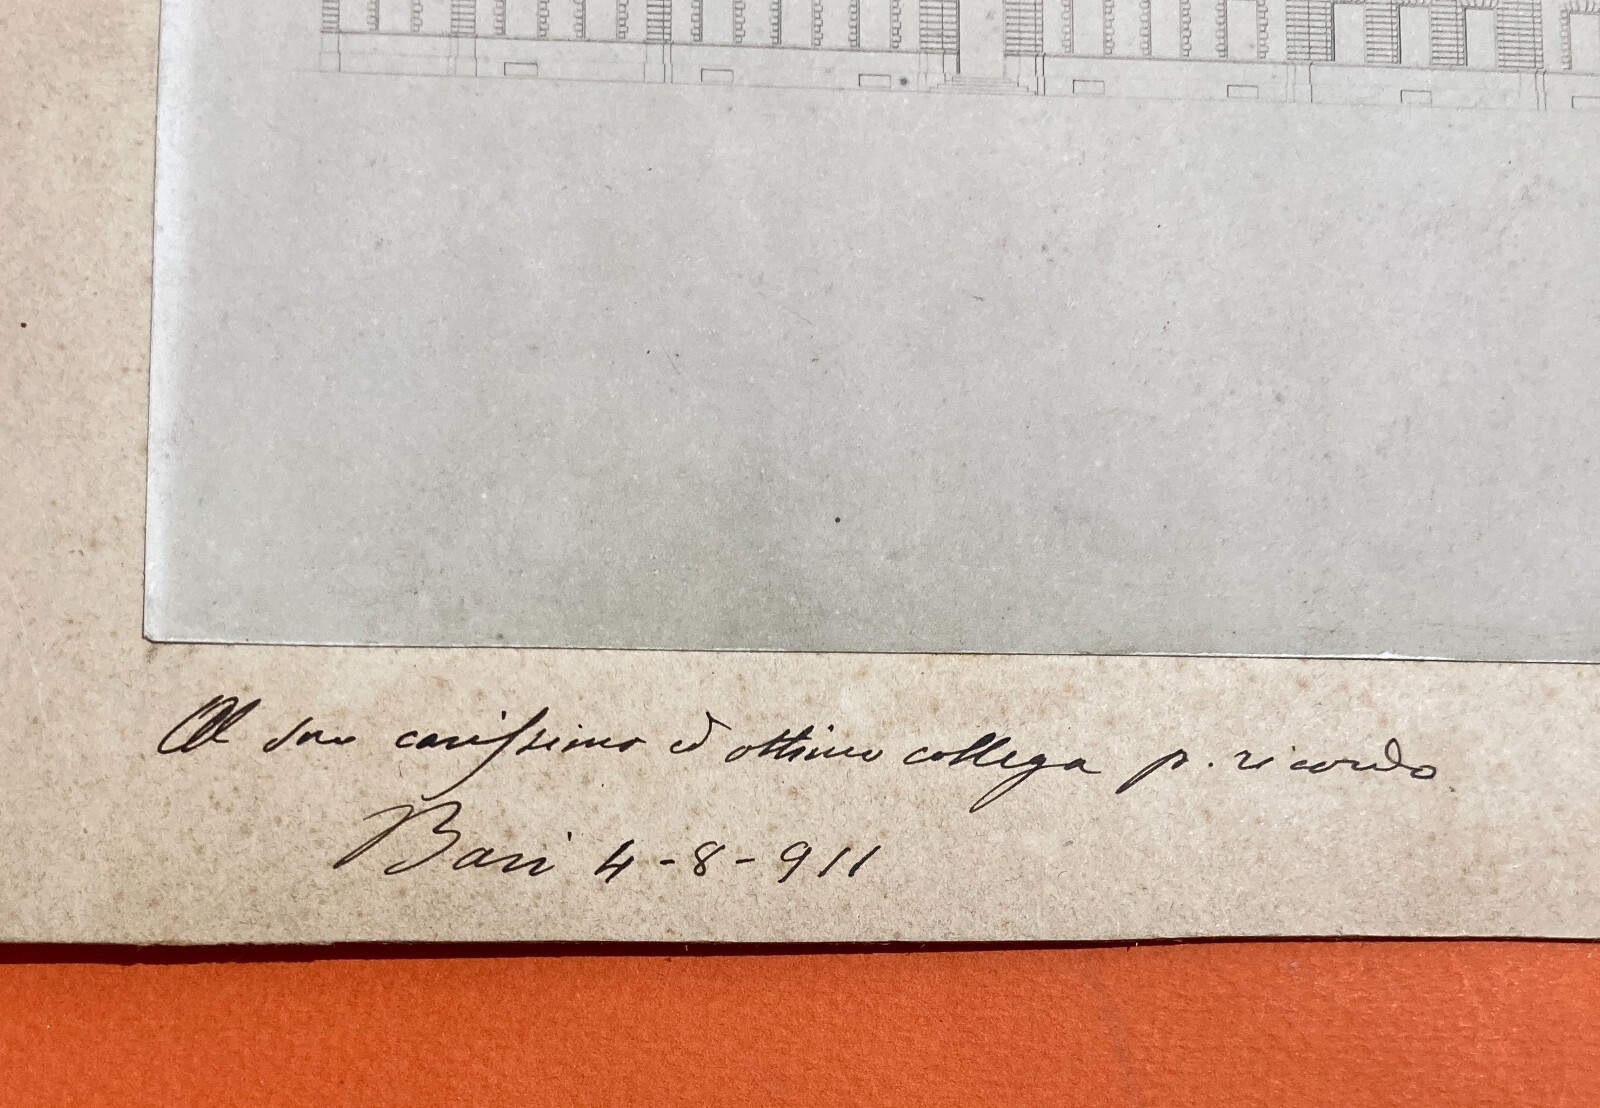 Al suo carissimo ed ottimo collega p. ricordo
Bari 4-8-911